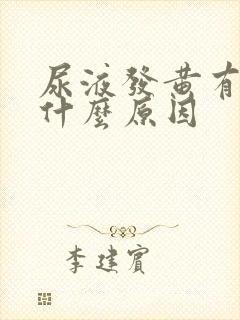 尿液發黄有
什麼原因
李建賓